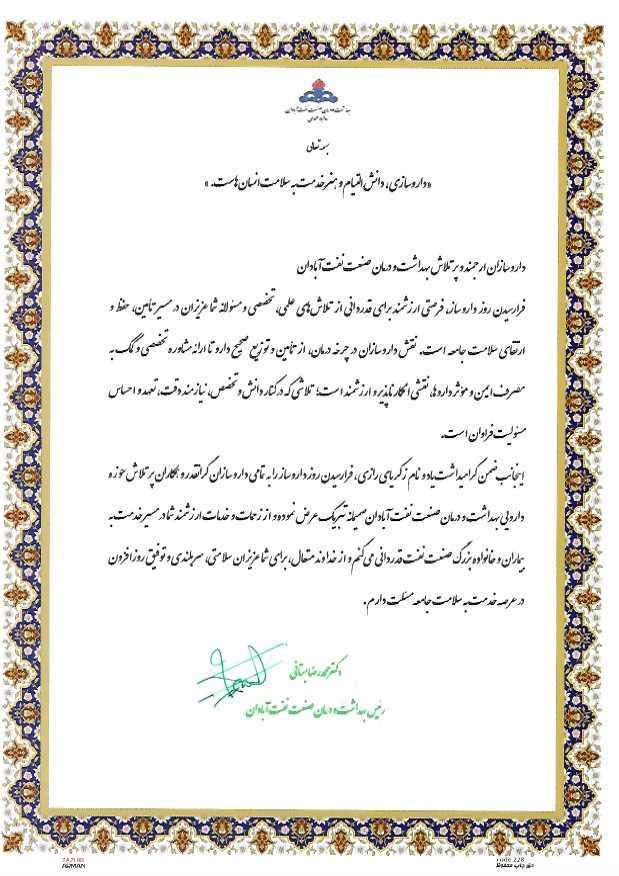 بهداشت و درمان صنعت نفت آبادان
روابط عمومی
بسمه تعالی
«داروسازی، دانش التیام و هنر خدمت به سلامت انسان هاست.»
داروسازان ارجمند و پرتلاش بهداشت و درمان صنعت نفت آبادان
فرارسیدن روز داروساز، فرصتی ارزشمند برای قدردانی از تلاش‌های علمی، تخصصی و مسئولانه شما عزیزان در مسیر تأمین، حفظ و
ارتقای سلامت جامعه است. نقش داروسازان در چرخه درمان، از تأمین و توزیع صحیح دارو تا ارائه مشاوره تخصصی و کمک به
مصرف ایمن و مؤثر داروها، نقشی انکارناپذیر و ارزشمند است؛ تلاشی که در کنار دانش و تخصص، نیازمند دقت، تعهد و احساس
مسئولیت فراوان است.
اینجانب ضمن گرامیداشت یاد و نام زکریای رازی، فرارسیدن روز داروساز را به تمامی داروسازان گرانقدر و همکاران پرتلاش حوزه
دارویی بهداشت و درمان صنعت نفت آبادان صمیمانه تبریک عرض نموده و از زحمات و خدمات ارزشمند شما در مسیر خدمت به
بیماران و خانواده بزرگ صنعت نفت قدردانی می‌کنم و از خداوند متعال، برای شما عزیزان سلامتی، سربلندی و توفیق روزافزون
در عرصه خدمت به سلامت جامعه مسئلت دارم.
دکتر محمدرضا بستانی
رئیس بهداشت و درمان صنعت نفت آبادان
code 228
حق چاپ محفوظ